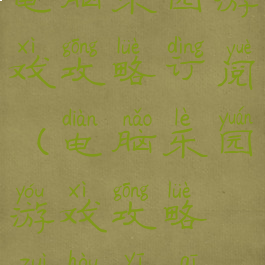 电脑乐园游
xì gōng lüè dìng yuè
戏攻略订阅
diàn nǎo lè yuán
（电脑乐园
yóu xì gōng lüè
游戏攻略